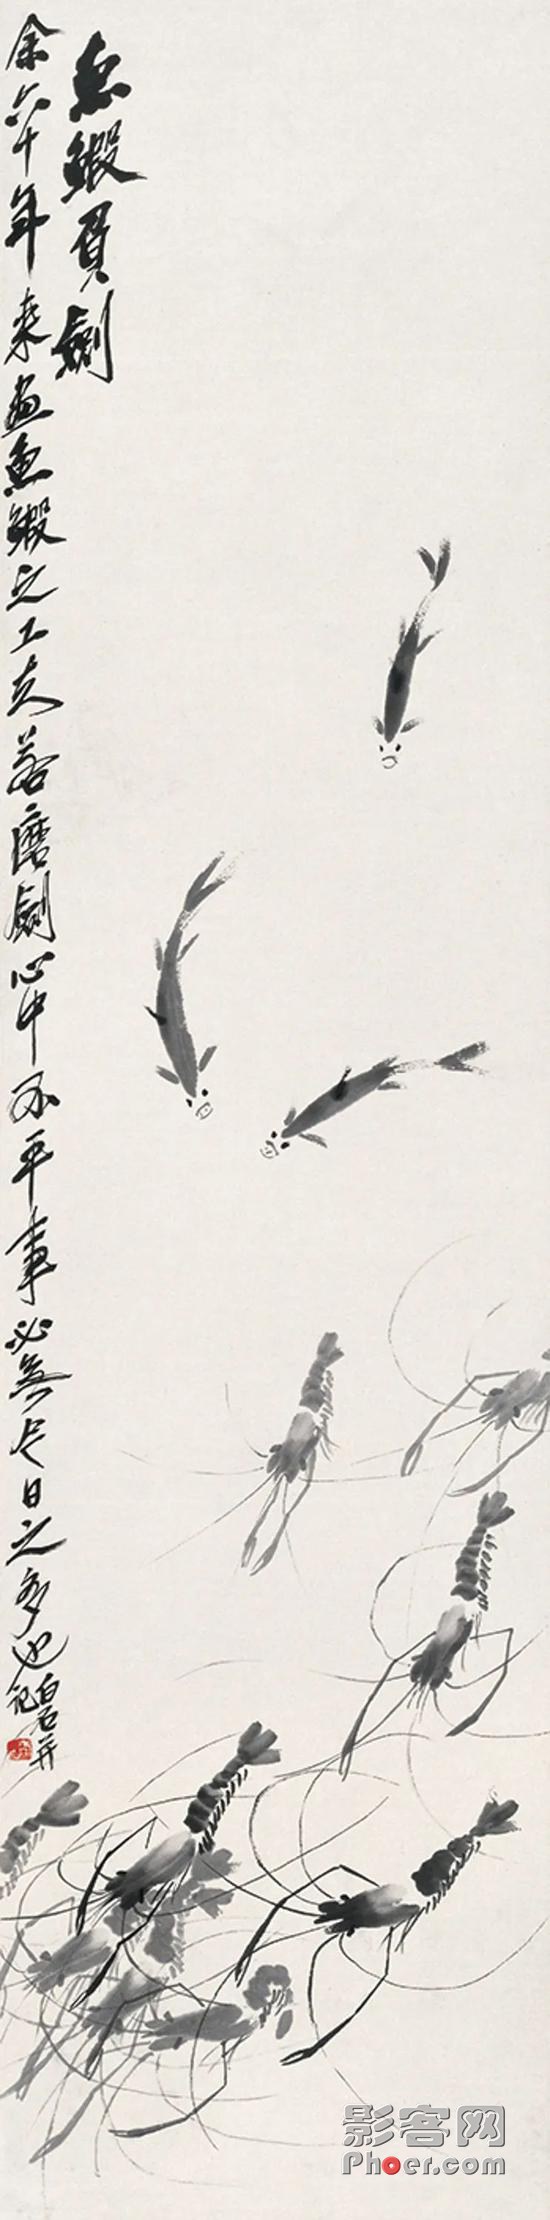 魚鰕負劍
余六十年來畫魚鰕之工夫若磨劍心中不平事必無今日之多也
白石并
記
影客网
Phoer.com